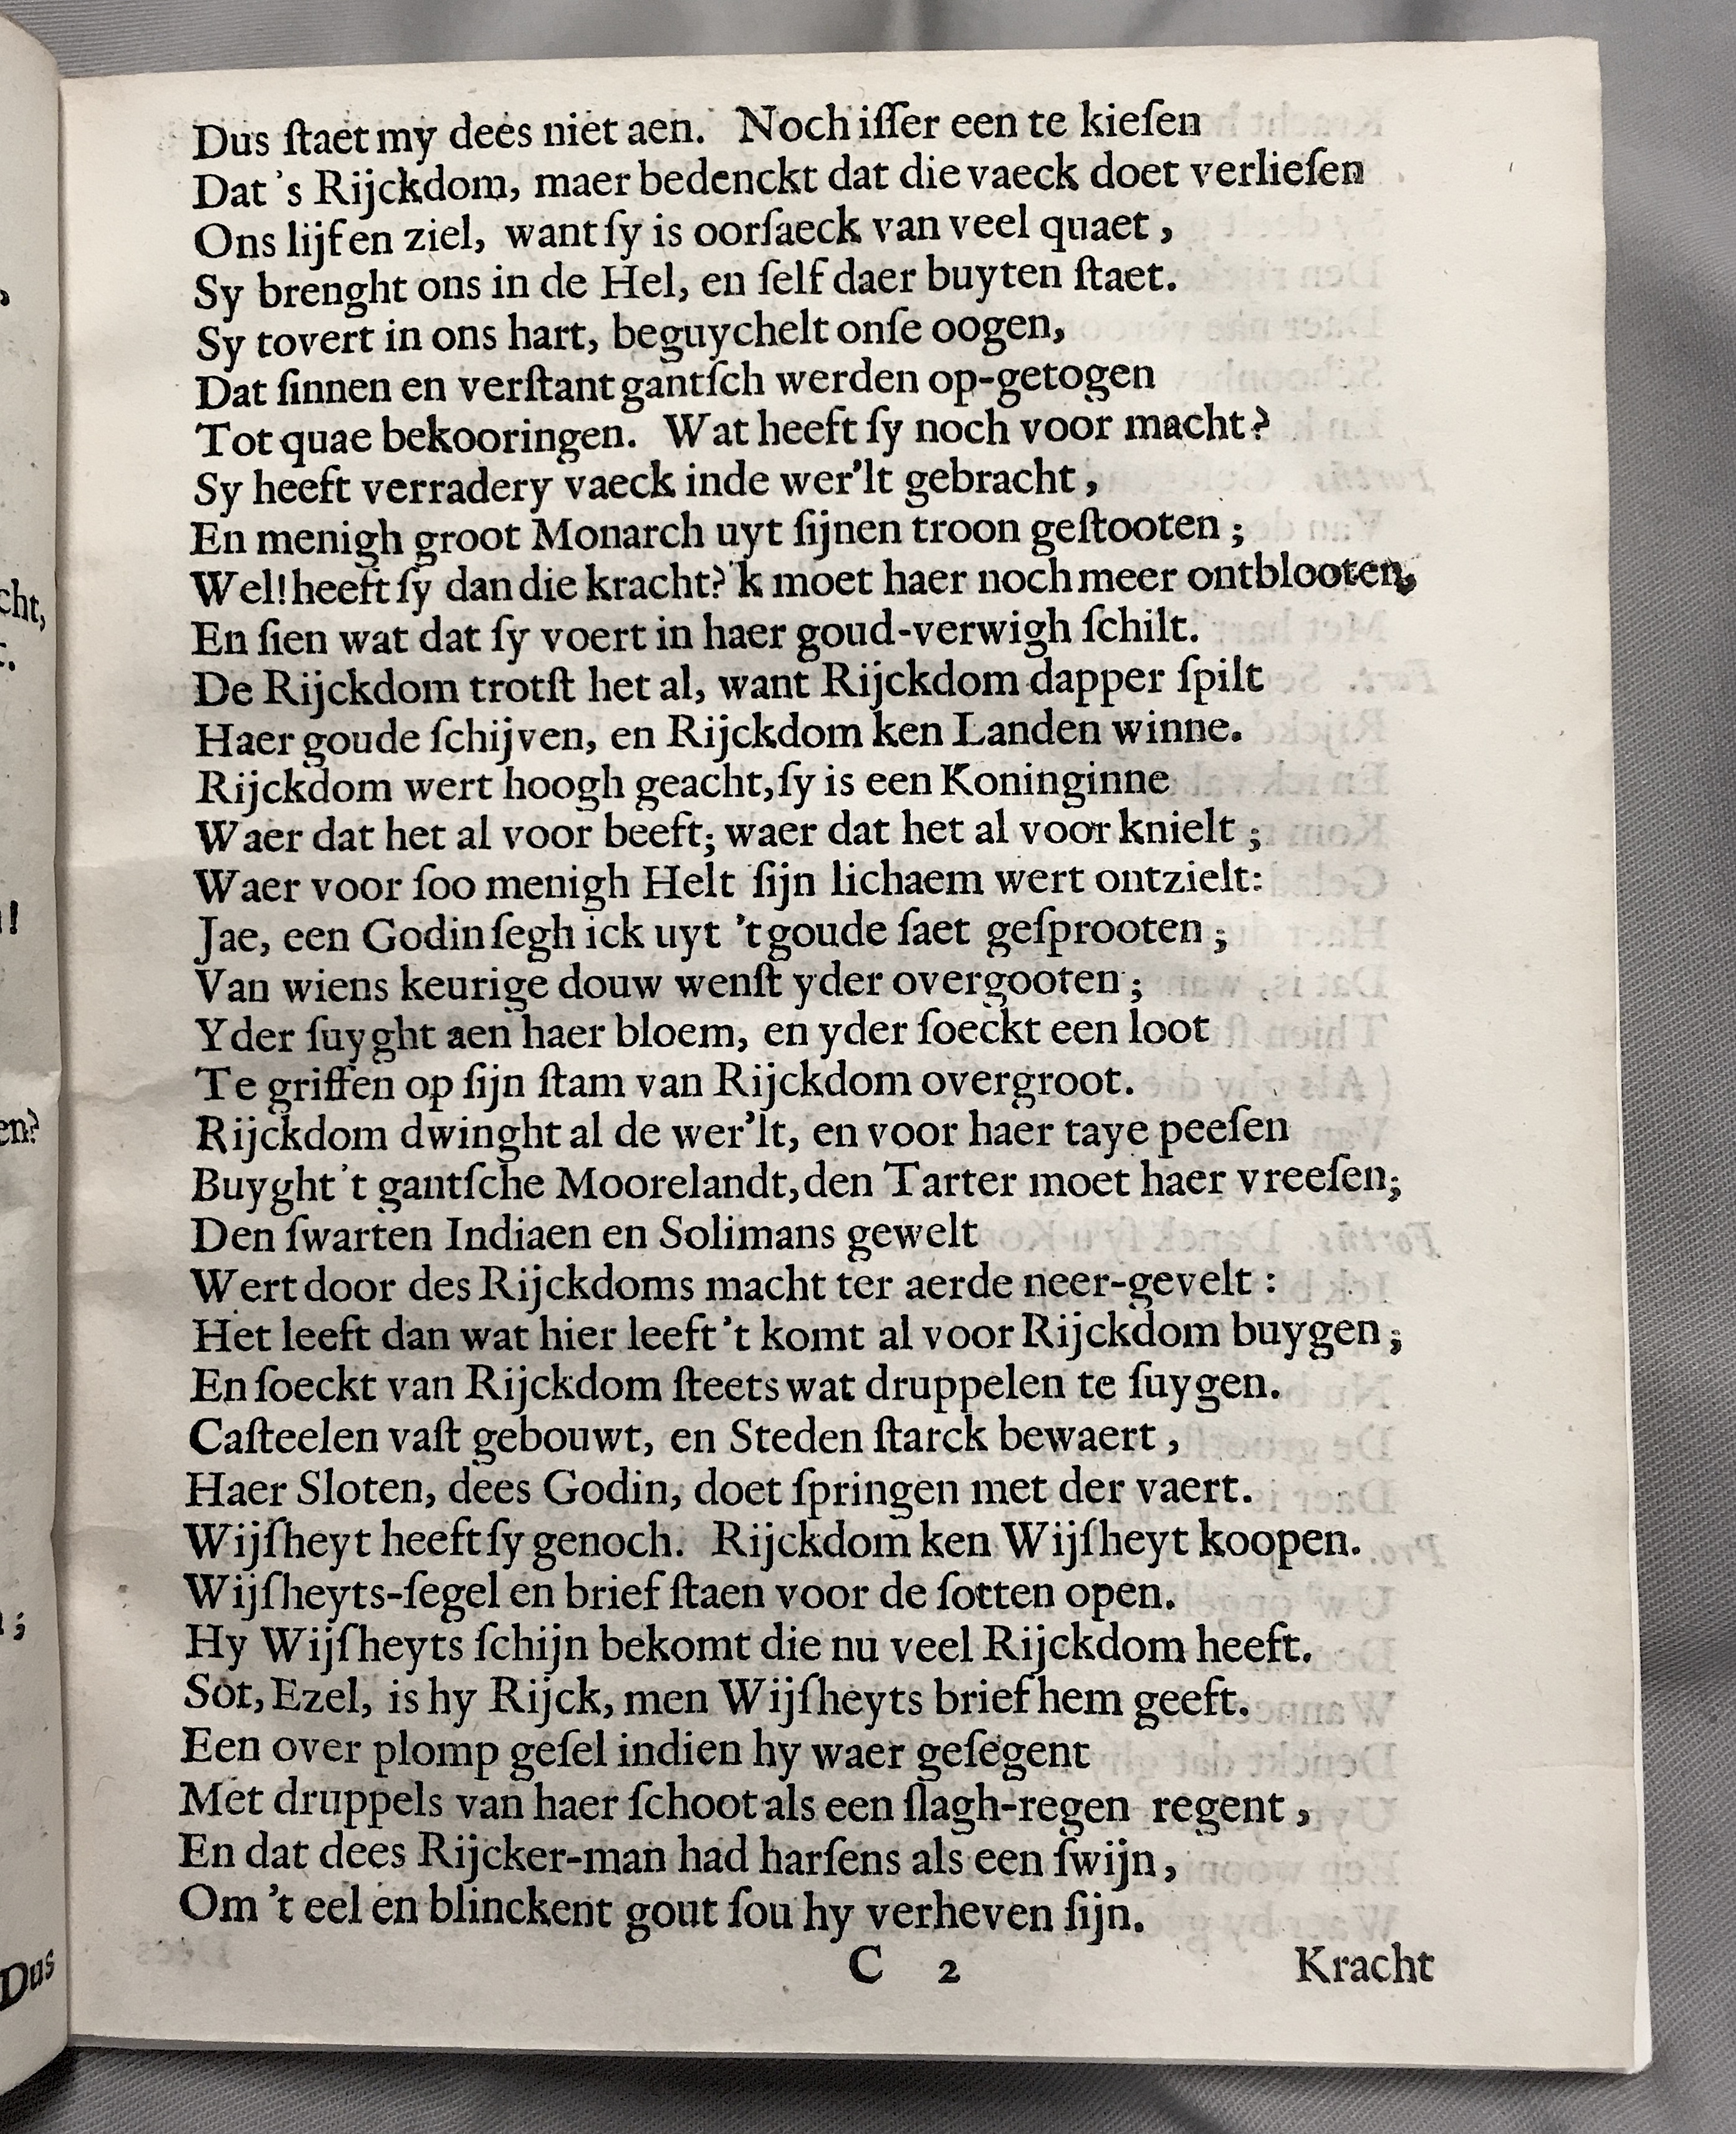 Dus ſtaet my dees niet aen. Noch iſſer een te kieſen
Dat 's Rijckdom, maer bedenckt dat die vaeck doet verlieſen
Ons lijf en ziel, want ſy is oorſaeck van veel quaet,
Sy brenght ons in de Hel, en ſelf daer buyten ſtaet.
Sy tovert in ons hart, beguychelt onſe oogen,
Dat ſinnen en verſtant gantſch werden op-getogen
Tot quae bekooringen. Wat heeft ſy noch voor macht?
Sy heeft verradery vaeck inde wer'lt gebracht,
En menigh groot Monarch uyt ſijnen troon geſtooten;
Wel! heeft ſy dan die kracht? 'k moet haer noch meer ontblooten,
En ſien wat dat ſy voert in haer goud-verwigh ſchilt.
De Rijckdom trotſt het al, want Rijckdom dapper ſpilt
Haer goude ſchijven, en Rijckdom ken Landen winne.
Rijckdom wert hoogh geacht, ſy is een Koninginne
Waer dat het al voor beeft; waer dat het al voor knielt;
Waer voor ſoo menigh Helt ſijn lichaem wert ontzielt:
Jae, een Godin ſegh ick uyt 't goude ſaet geſprooten;
Van wiens keurige douw wenſt yder overgooten;
Yder ſuyght aen haer bloem, en yder ſoeckt een loot
Te griffen op ſijn ſtam van Rijckdom overgroot.
Rijckdom dwinght al de wer'lt, en voor haer taye peeſen
Buyght 't gantſche Moorelandt, den Tarter moet haer vreeſen;
Den ſwarten Indiaen en Solimans gewelt
Wert door des Rijckdoms macht ter aerde neer-gevelt:
Het leeft dan wat hier leeft 't komt al voor Rijckdom buygen;
En ſoeckt van Rijckdom ſteets wat druppelen te ſuygen.
Caſteelen vaſt gebouwt, en Steden ſtarck bewaert,
Haer Sloten, dees Godin, doet ſpringen met der vaert.
Wijſheyt heeft ſy genoch. Rijckdom ken Wijſheyt koopen.
Wijſheyts-ſegel en brief ſtaen voor de ſotten open.
Hy Wijſheyts ſchijn bekomt die nu veel Rijckdom heeft.
Sot, Ezel, is hy Rijck, men Wijſheyts brief hem geeft.
Een over plomp geſel indien hy waer geſegent
Met druppels van haer ſchoot als een ſlagh-regen regent,
En dat dees Rijcker-man had harſens als een ſwijn,
Om 't eel en blinckent gout ſou hy verheven ſijn.
C 2 Kracht
Dus